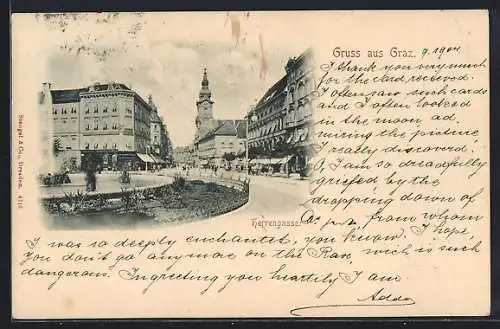 Gruss aus Graz. 9. 1904
I thank you very much
for the card received.
I often saw such cards
and I often looked
in the moon ad-
miring the picture
I really discovered.
I am so dreadfully
griefed by the
dropping down of
from whom
Herrengasse.
I was so deeply enchantet, you know. I hope,
you don't go any more on the Rax, wich is such
dangerous. In greeting you heartily I am
Adda
Stengel & Co., Dresden. 4216